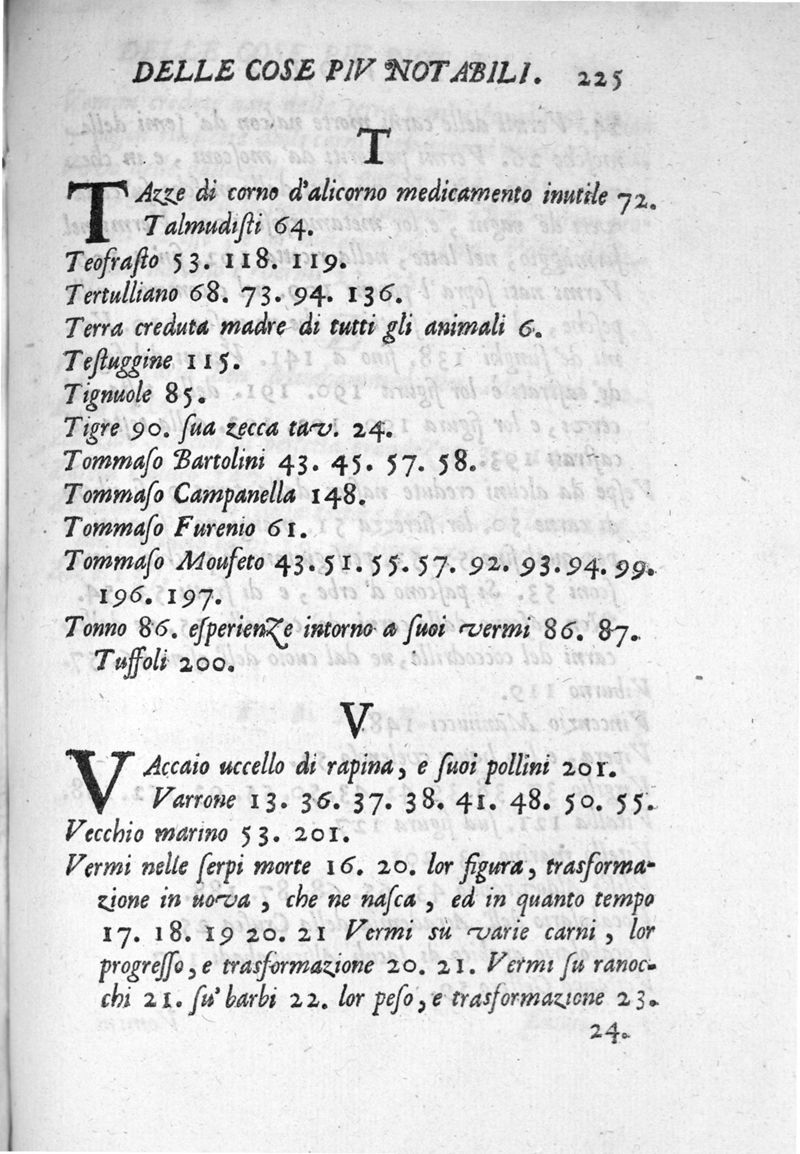 DELLE COSE PIV NOTABILI. 225
T
TAzze di corno d'alicorno medicamento inutile 72.
Talmudiſti 64.
Teofraſto 53. 118. 119.
Tertulliano 68. 73. 94. 136.
Terra creduta madre di tutti gli animali 6.
Teſtuggine 115.
Tignuole 85.
Tigre 90. ſua zecca tav. 24.
Tommaſo Bartolini 43. 45. 57. 58.
Tommaſo Campanella 148.
Tommaſo Furenio 61.
Tommaſo Moufeto 43. 51. 55. 57. 92. 93. 94. 99.
196. 197.
Tonno 86. eſperienze intorno a ſuoi vermi 86. 87.
Tuffoli 200.
V
VAccaio uccello di rapina, e ſuoi pollini 201.
Varrone 13. 36. 37. 38. 41. 48. 50. 55.
Vecchio marino 53. 201.
Vermi nelle ſerpi morte 16. 20. lor figura, trasforma-
zione in uova, che ne naſca, ed in quanto tempo
17. 18. 19 20. 21 Vermi su varie carni, lor
progreſſo, e trasformazione 20. 21. Vermi ſu ranoc-
chi 21. ſu' barbi 22. lor peſo, e trasformazione 23.
24.